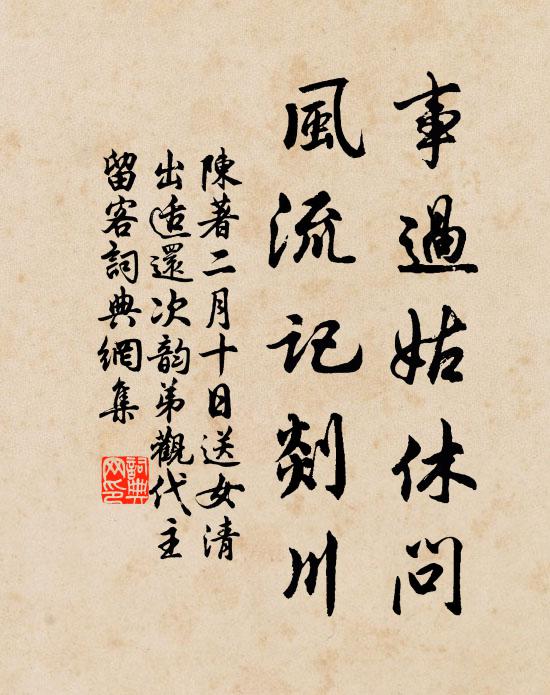 事過姑休問
風流記剡川
陳著二月十日送女清
出適還次韵弟觀代主
留客詞典網集
詞典
网印